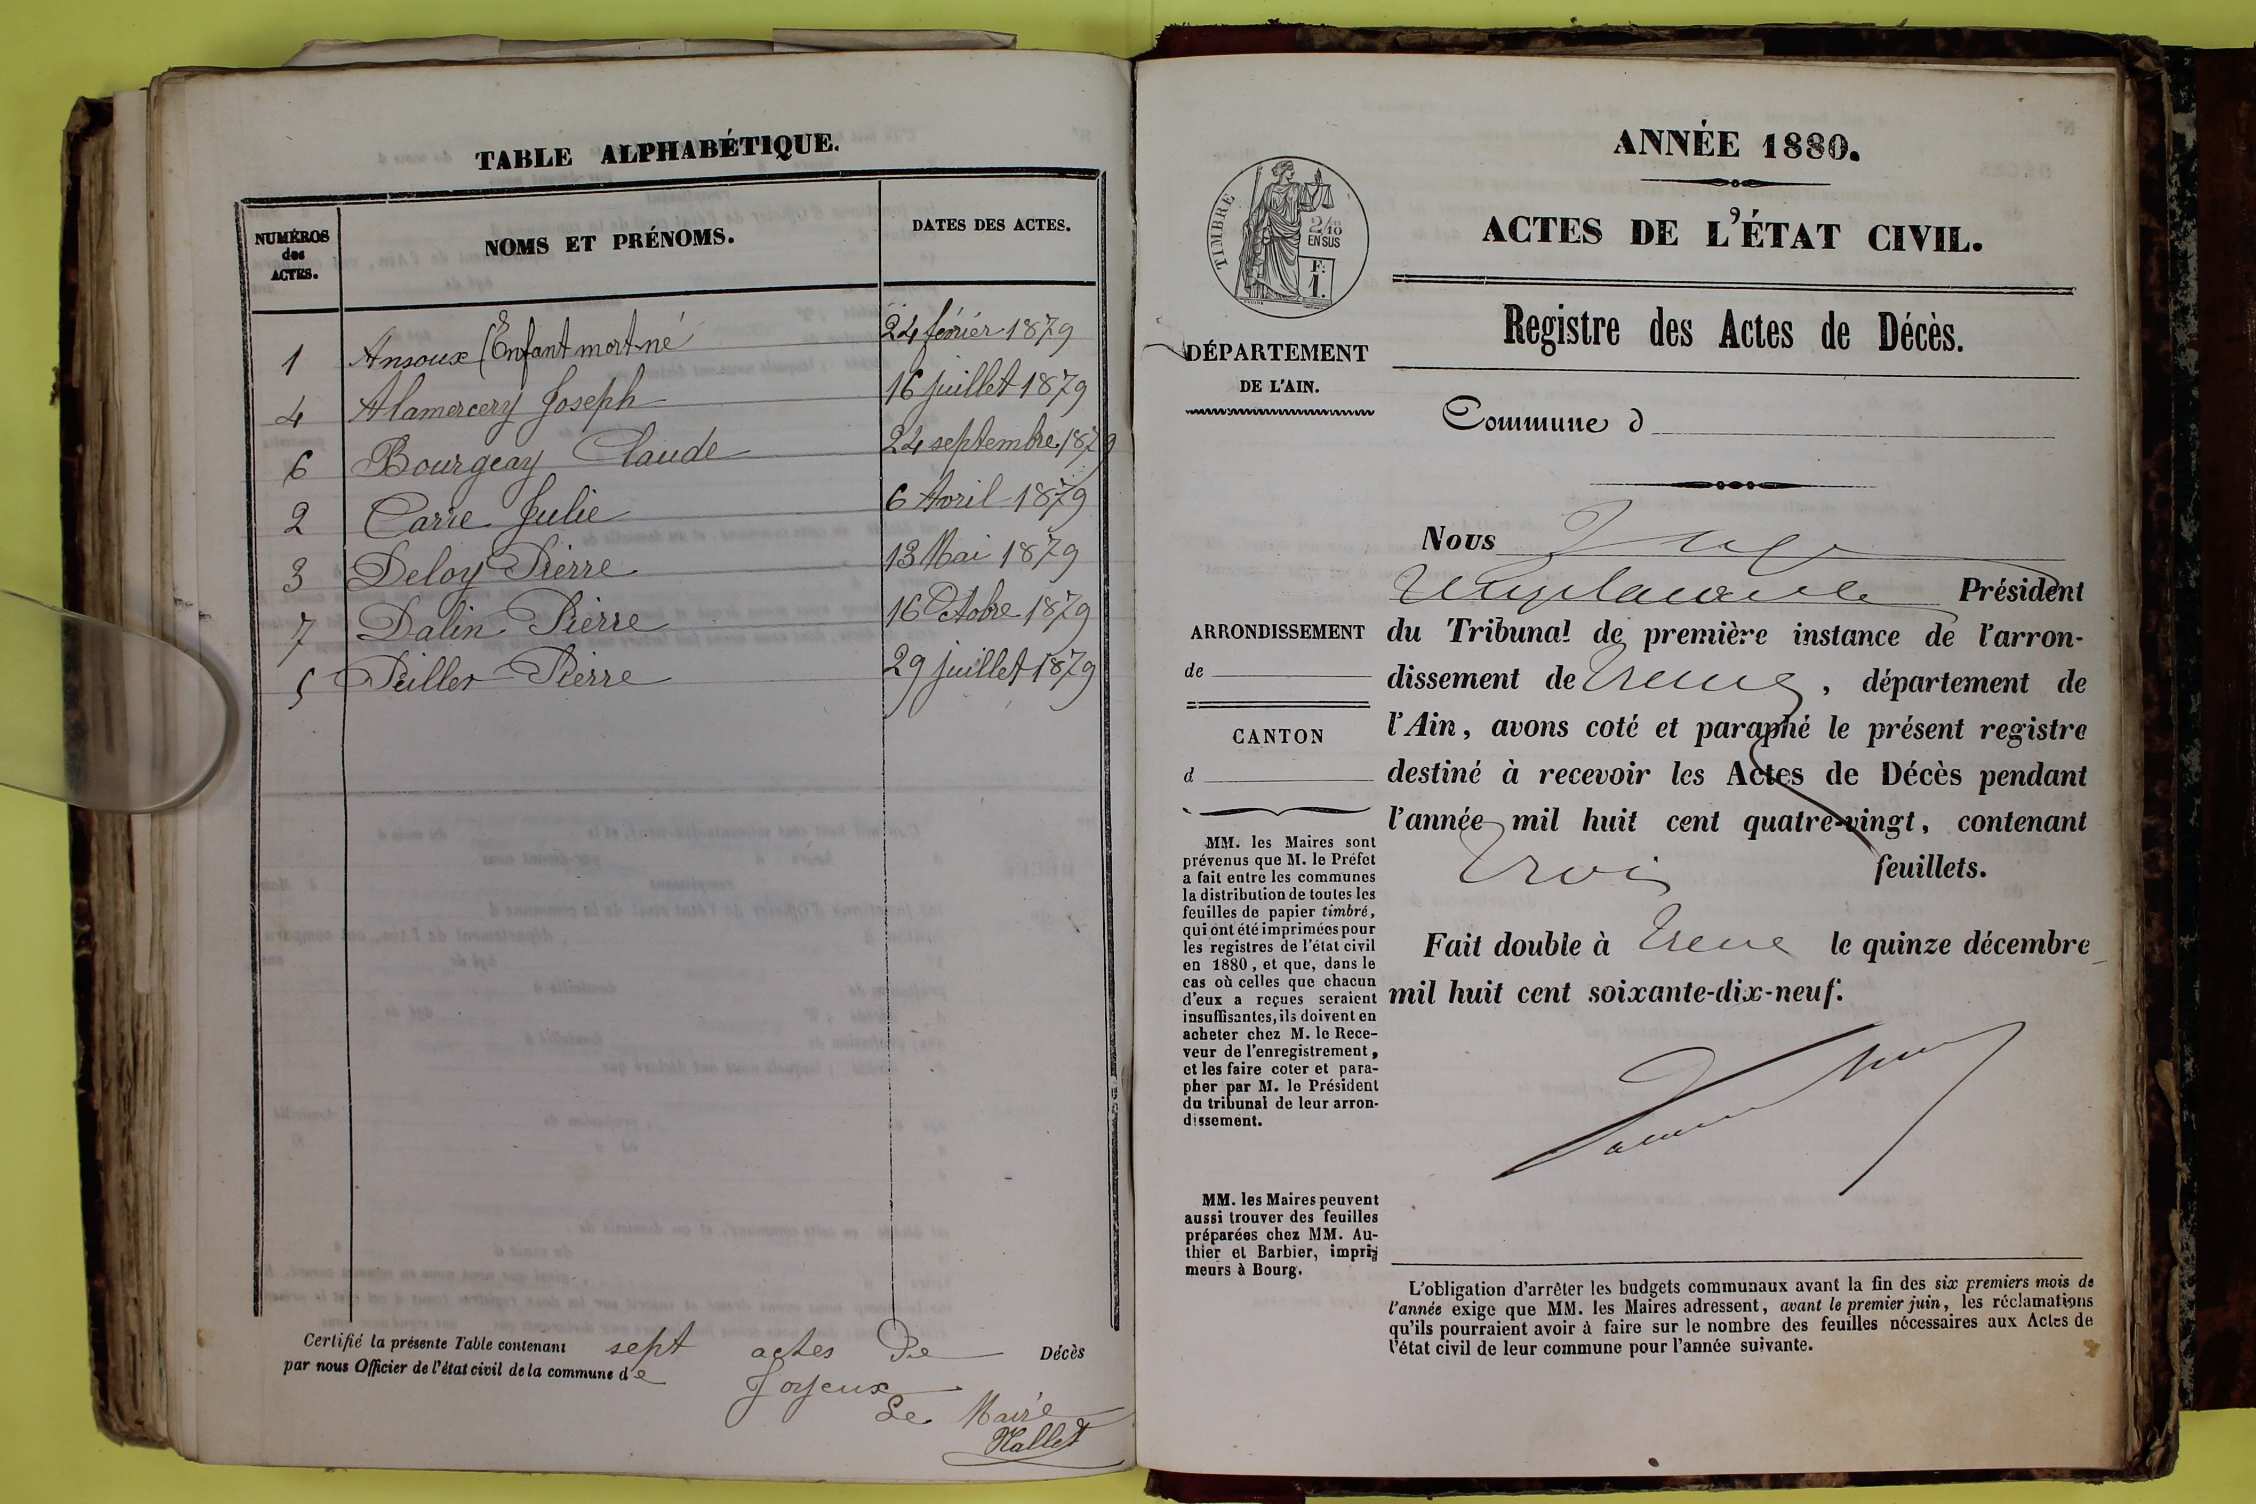 TABLE ALPHABÉTIQUE.
NUMÉROS
des
ACTES.
NOMS ET PRÉNOMS.
DATES DES ACTES.
1 Ansoux (Enfant mort né 24 février 1879
4 Alamercery Joseph 16 juillet 1879
6 Bourgeay Claude 24 septembre 1879
2 Carre Julie 6 Avril 1879
3 Deloy Pierre 13 Mai 1879
7 Dalin Pierre 16 Octobre 1879
5 Peiller Pierre 29 juillet 1879
Certifié la présente Table contenant sept actes De Décès
par nous Officier de l'état civil de la commune de Joyeux
Le Maire
ANNÉE 1880.
ACTES DE L'ÉTAT CIVIL.
TIMBRE
2/10
EN SUS
F.
1.
Registre des Actes de Décès.
DÉPARTEMENT
DE L'AIN.
Commune d
Nous Juge
Président
ARRONDISSEMENT
de
CANTON
d
du Tribunal de première instance de l'arron-
dissement de Trévoux, département de
l'Ain, avons coté et paraphé le présent registre
destiné à recevoir les Actes de Décès pendant
l'année mil huit cent quatre-vingt, contenant
Trois feuillets.
Fait double à le quinze décembre
mil huit cent soixante-dix-neuf.
MM. les Maires sont
prévenus que M. le Préfet
a fait entre les communes
la distribution de toutes les
feuilles de papier timbré,
qui ont été imprimées pour
les registres de l'état civil
en 1880, et que, dans le
cas où celles que chacun
d'eux a reçues seraient
insuffisantes, ils doivent en
acheter chez M. le Rece-
veur de l'enregistrement,
et les faire coter et para-
pher par M. le Président
du tribunal de leur arron-
dissement.
MM. les Maires peuvent
aussi trouver des feuilles
préparées chez MM. Au-
thier et Barbier, impri-
meurs à Bourg.
L'obligation d'arrêter les budgets communaux avant la fin des six premiers mois de
l'année exige que MM. les Maires adressent, avant le premier juin, les réclamations
qu'ils pourraient avoir à faire sur le nombre des feuilles nécessaires aux Actes de
l'état civil de leur commune pour l'année suivante.